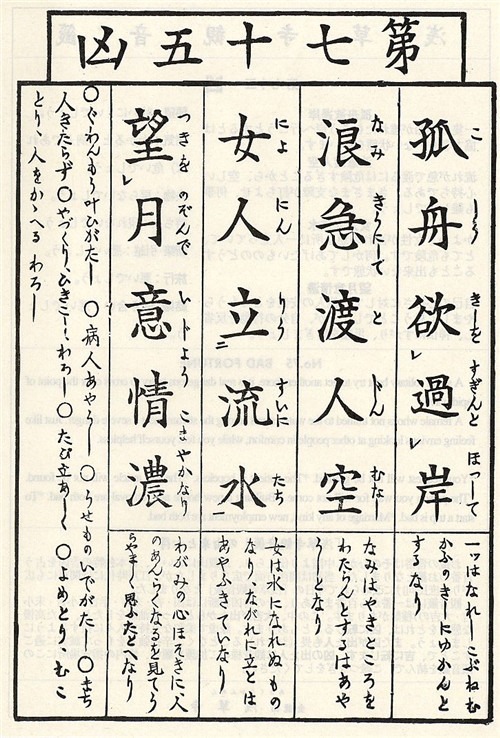 第七十五凶
こしう きしを すぎんと ほつして
孤舟欲過岸
一ツはなれしこぶねむ
かふのきしにゆかんと
するなり
浪急渡人空
なみはやきところを
わたらんとするはあや
うしとなり
によにん りうすいに たち
女人立流水
女は水になれぬもの
なりながれに立とは
あやふきていなり
つきを のぞんで いじよう こまやかなり
望月意情濃
わがみの心ほそきに人
のあんらくなるを見てう
らやましく思ふたとへなり
○ぐわんもう叶ひがたし ○病人あやうし ○うせものいでがたし ○まち
人きたらず○やづくり、ひきこしわろし○たび立あしく○よめとり、むこ
とり、人をかゝへるわろし